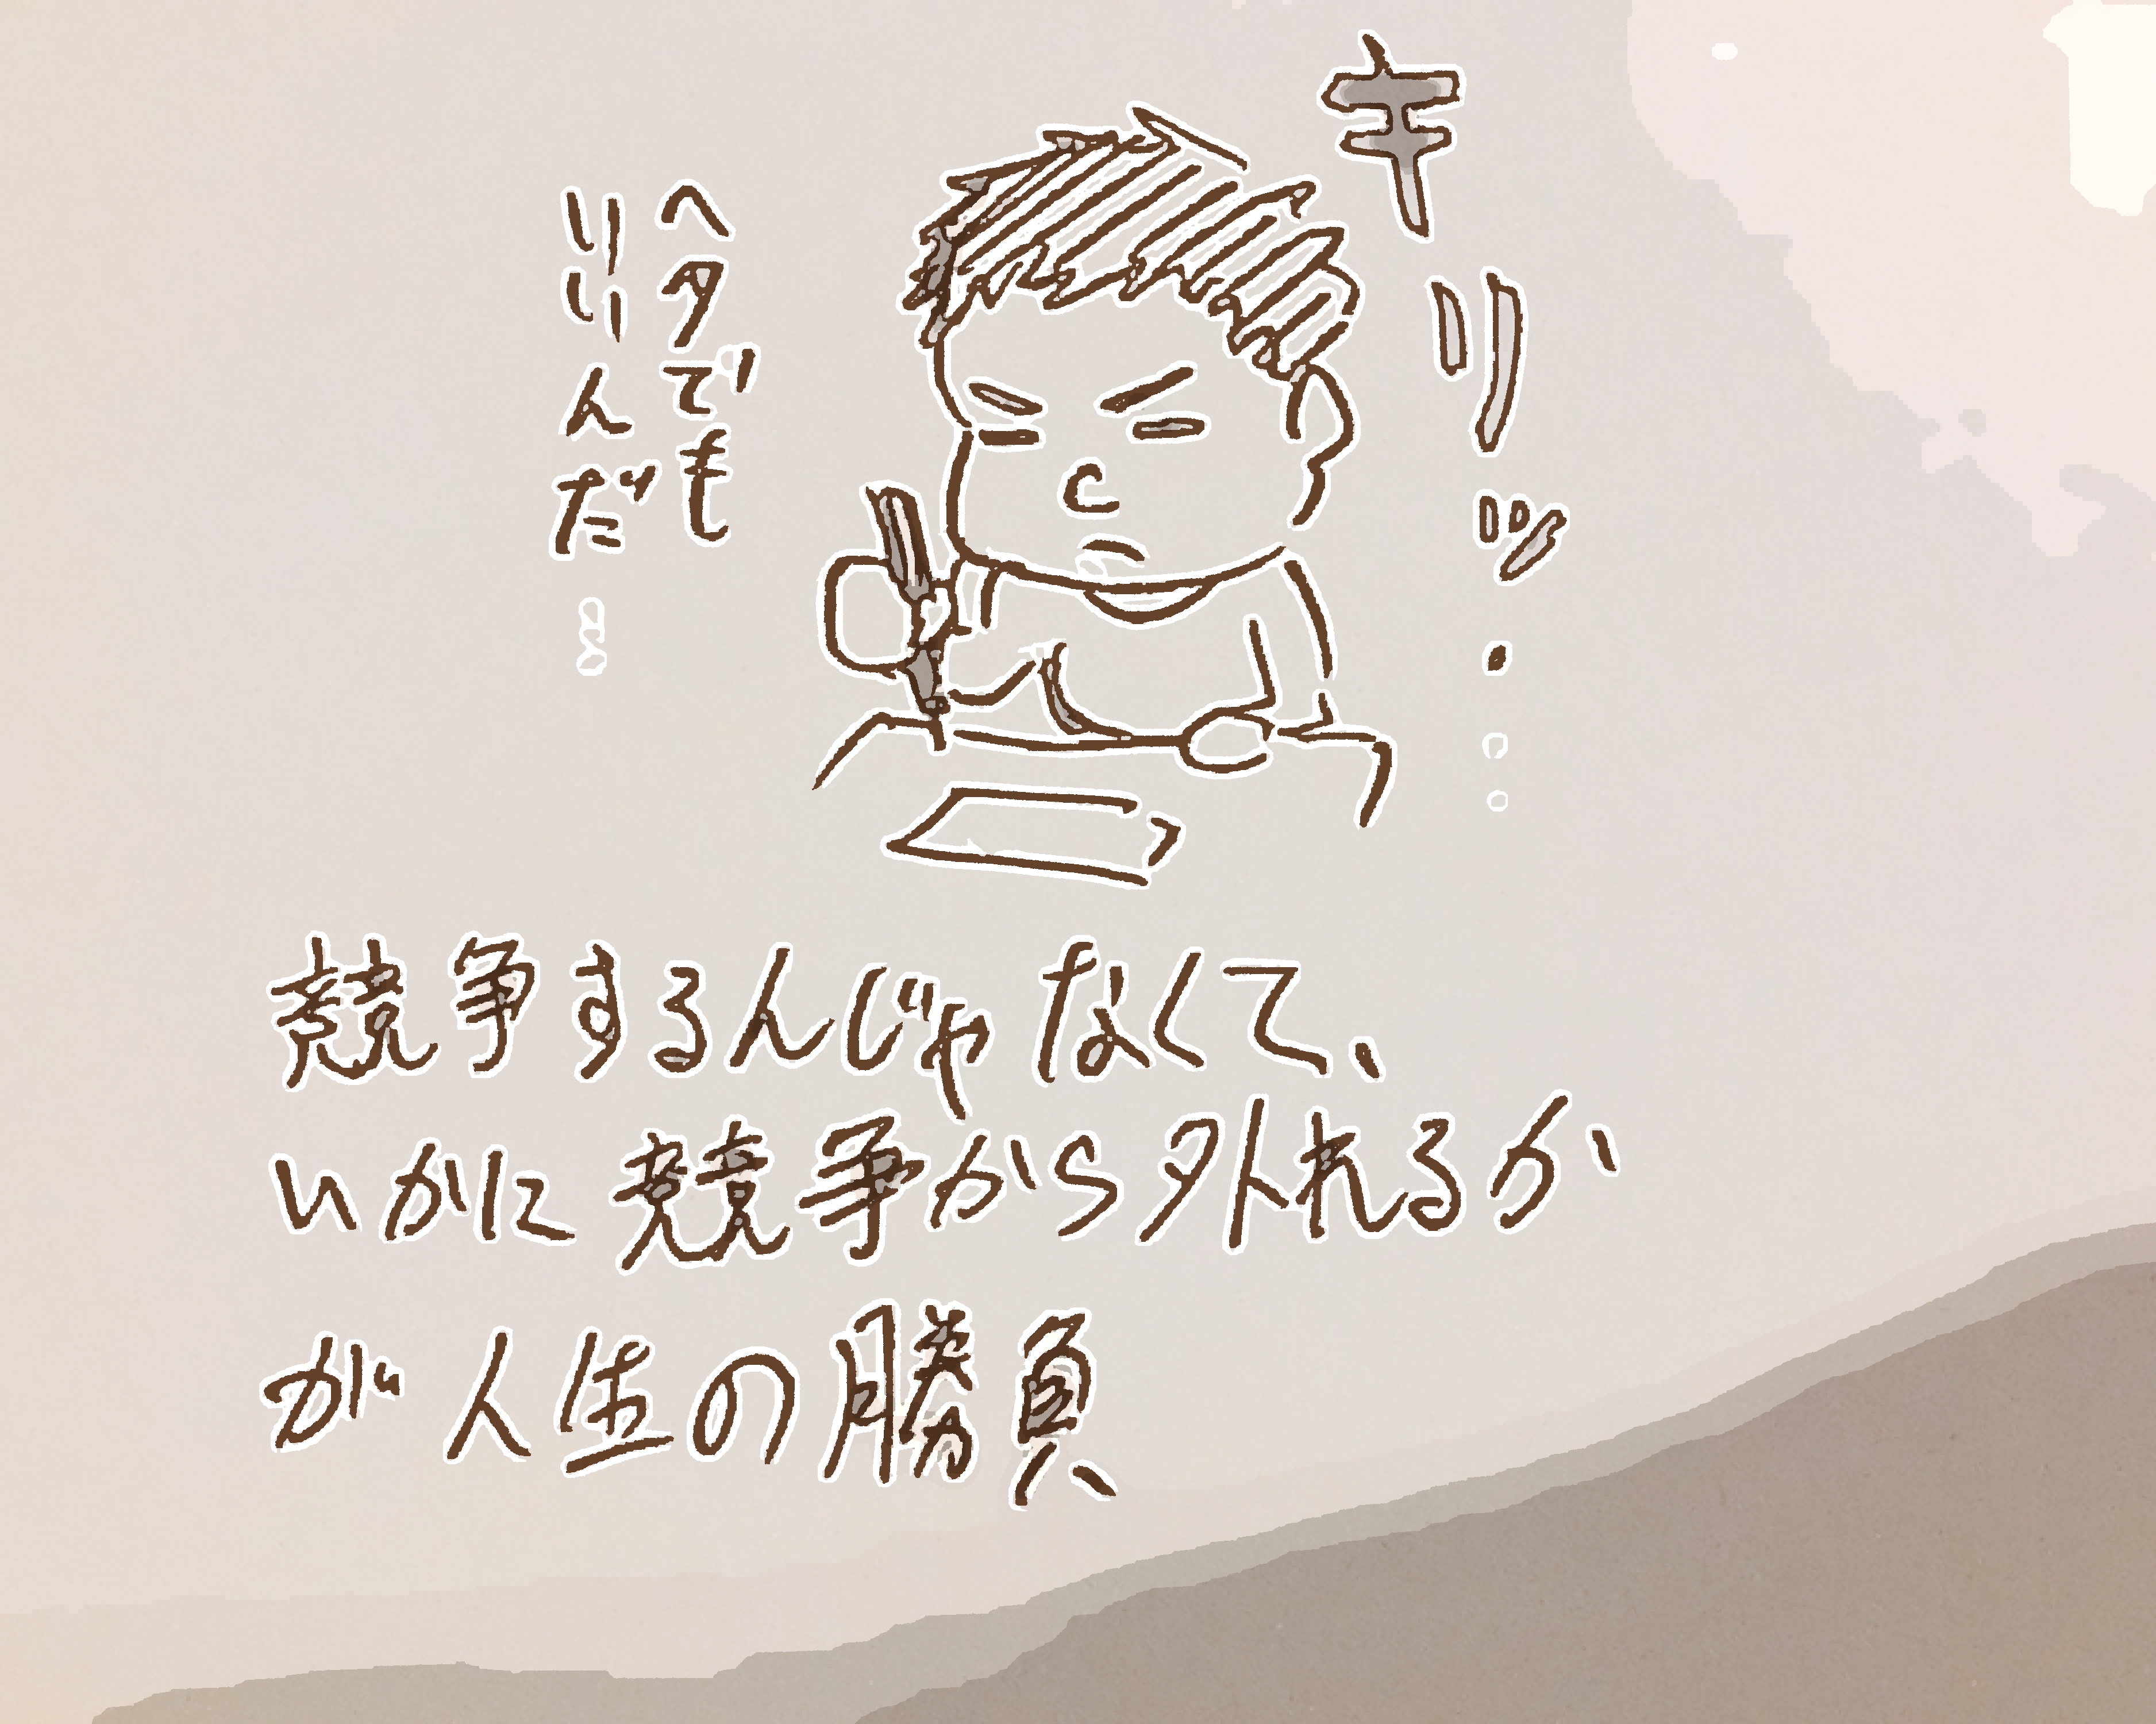 キリッ・・・
ヘタでも
いいんだ…
競争するんじゃなくて、
いかに競争から外れるか
が人生の勝負